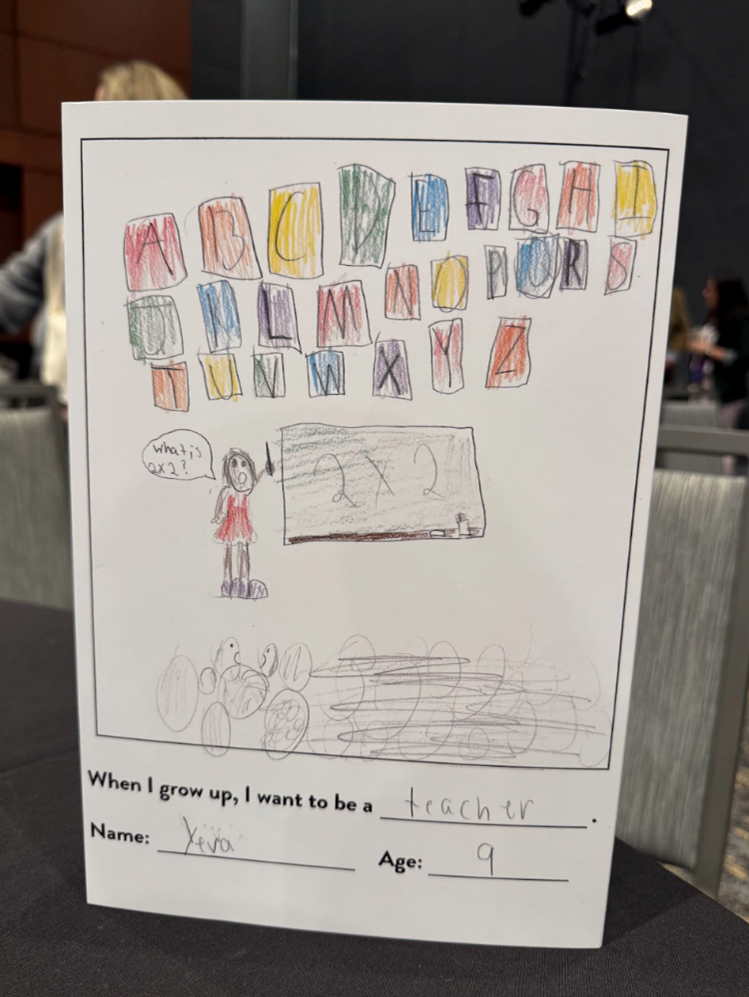 A B C D E F G H I
J K L M N O P Q R S
T U V W X Y Z
What is
2x2?
2 x 2
When I grow up, I want to be a teacher.
Name: Yeva
Age: 9